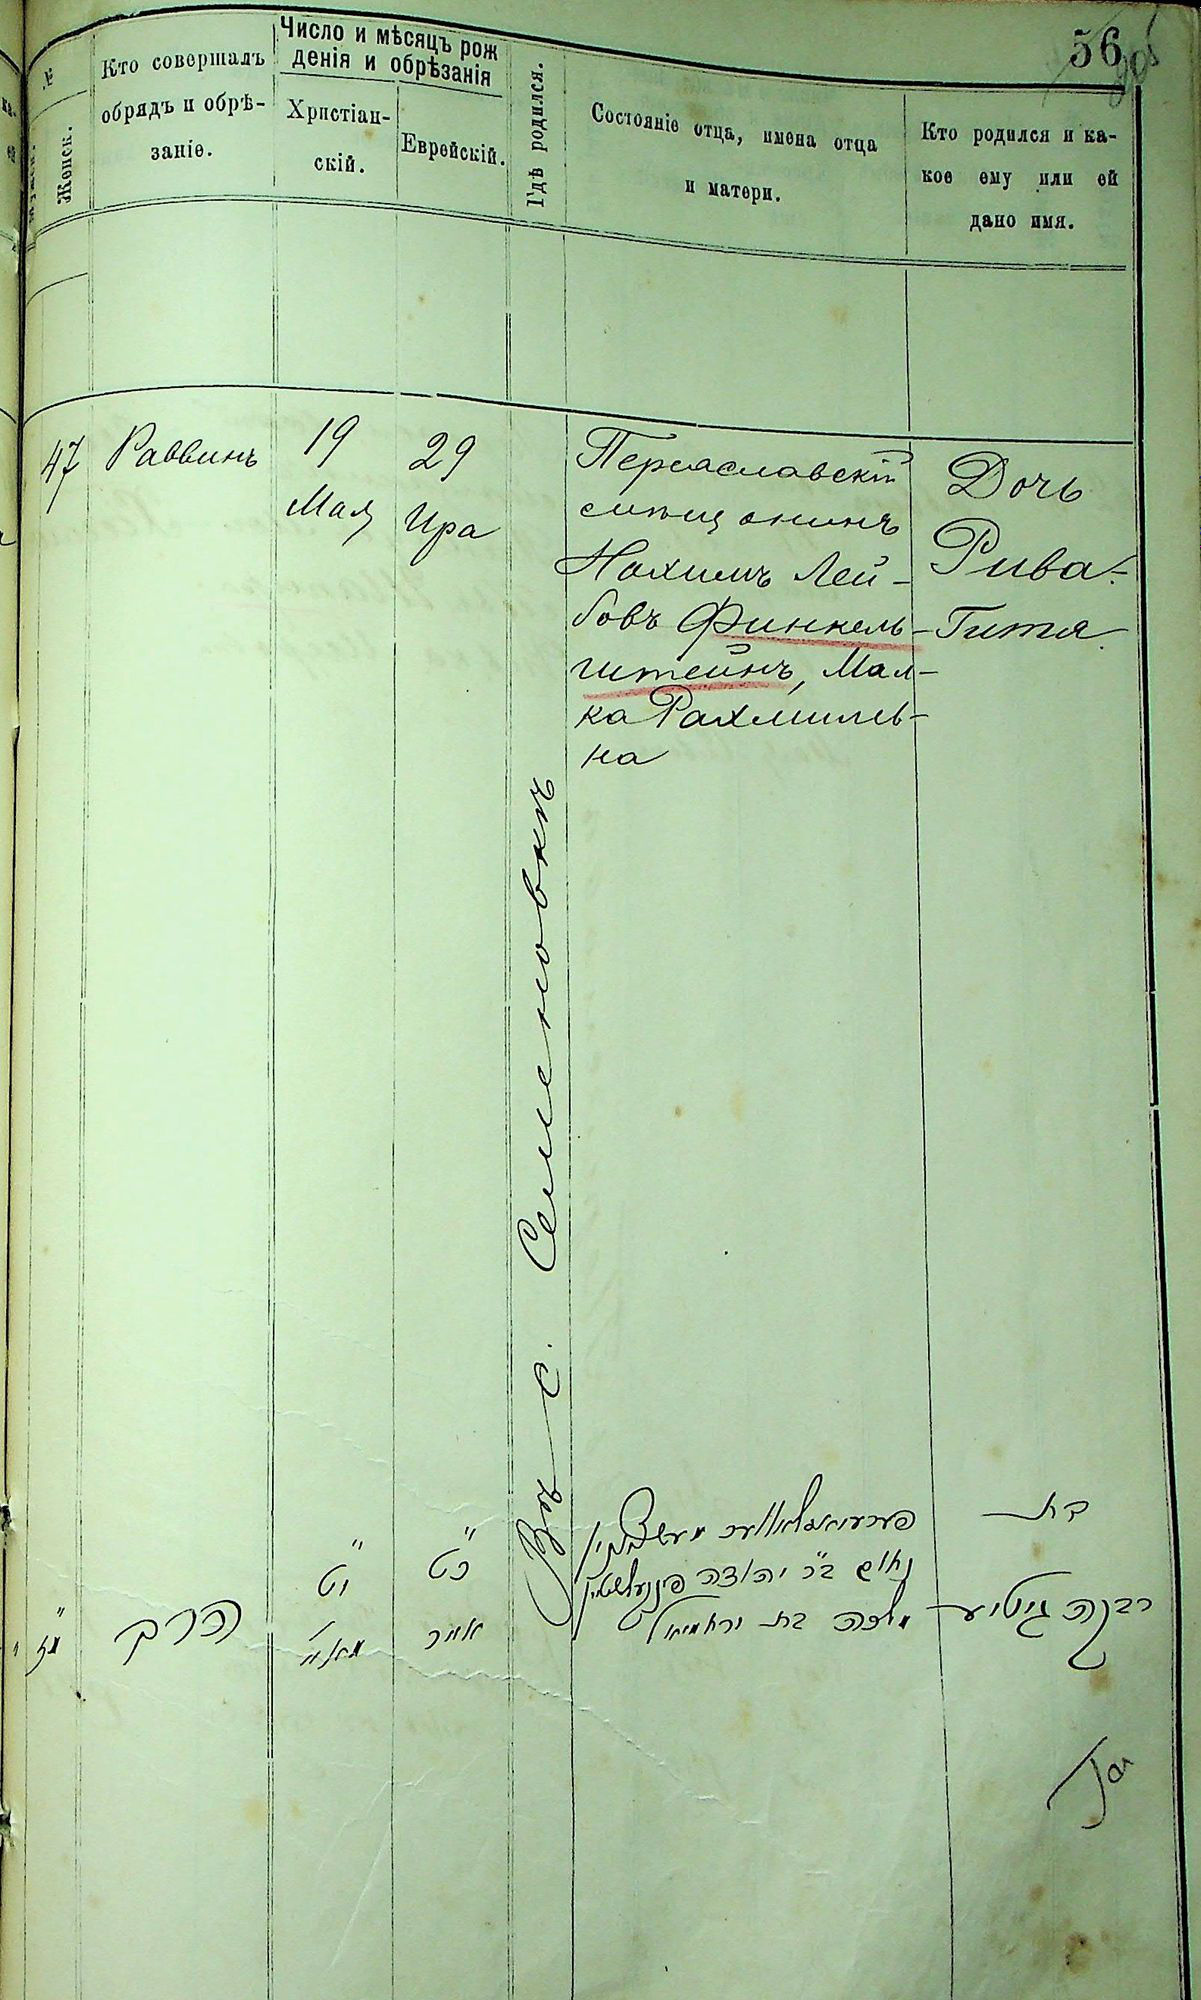 56
№
Женск.
Кто совершалъ
обрядъ и обрѣ-
заніе.
Число и мѣсяцъ рож
денія и обрѣзанія
Христіан-
скій.
Еврейскій.
Гдѣ родился.
Состояніе отца, имена отца
и матери.
Кто родился и ка-
кое ему или ей
дано имя.
47
Раввинъ
19
Мая
29
Ира
Въ с. Семеновкѣ
Переаславскій
Нахимъ Лей-
бовъ Финкель-
штейнъ, Мал-
ка Рахмиль-
на
Дочь
Рива-
Гитя
מז
הרב
יט
מאי
כט
אייר
נחום ב"ר יהודה פינקעלשטיין
מלכה בת ירחמיאל
בת
רבקה גיטיע